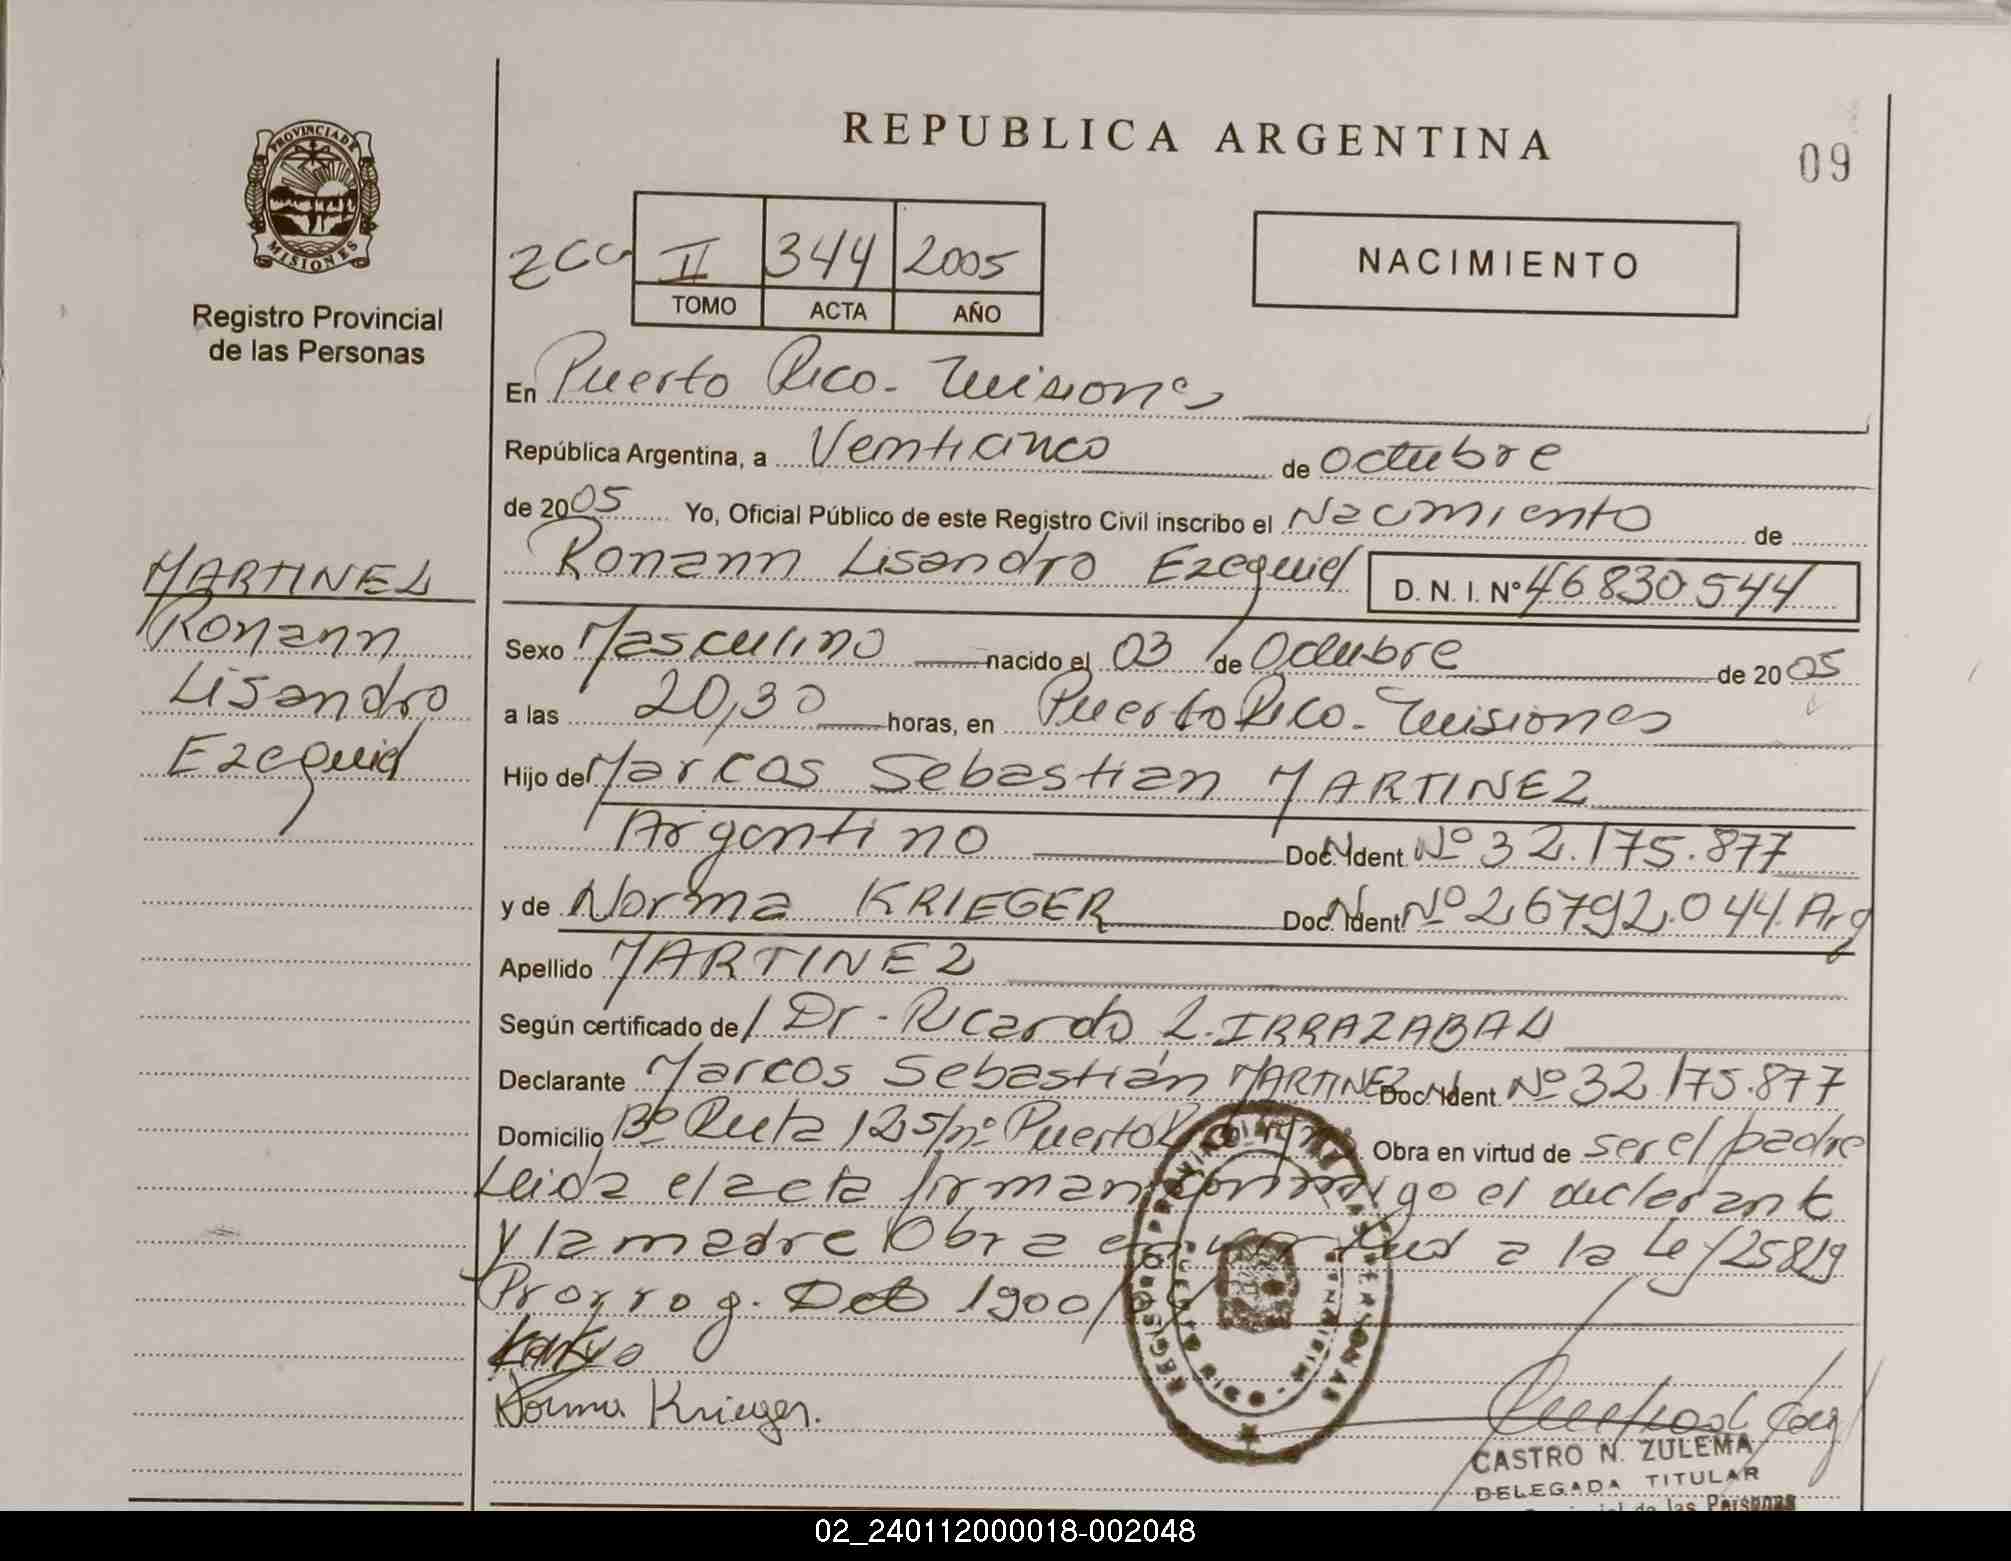 REPUBLICA ARGENTINA
09
PROVINCIA DE MISIONES
Registro Provincial
de las Personas
II 344 2005
TOMO ACTA AÑO
NACIMIENTO
En Puerto Rico - Misiones
República Argentina, a Veinticinco de Octubre
de 2005 Yo, Oficial Público de este Registro Civil inscribo el Nacimiento de
Ronann Lisandro Ezequiel D. N. I. Nº 46830544
MARTINEZ
Ronann
Lisandro
Ezequiel
Sexo Masculino nacido el 03 de Octubre de 2005
a las 20,30 horas, en Puerto Rico - Misiones
Hijo de Marcos Sebastian MARTINEZ
Argentino Doc. Ident. Nº 32.175.877
y de Norma KRIEGER Doc. Ident. Nº 26792.044. Arg
Apellido MARTINEZ
Según certificado del Dr. Ricardo L. IRRAZABAL
Declarante Marcos Sebastián MARTINEZ Doc. Ident. Nº 32.175.877
Domicilio Bº Ruta 12 s/nº Puerto Obra en virtud de ser el padre
Leida el acta firman conmigo el declarante
y la madre Obra en virtud a la Ley 25819
Prorrog. Dcto 1900/
Norma Krieger.
CASTRO N. ZULEMA
DELEGADA TITULAR
de las Personas
02_240112000018-002048